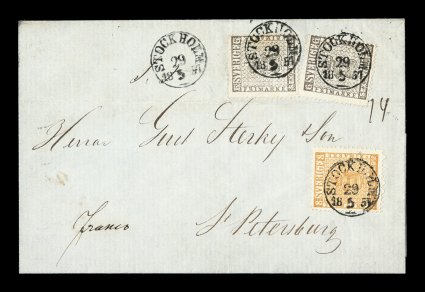 STOCKHOLM
29
18 5
STOCKHOLM
29
18 5 57
SVERIGE
FRIMARKE
STOCKHOLM
29
18 5 57
SVERIGE
FRIMARKE
74
Herrar Gust Sterky & Son
STOCKHOLM
29
18 5 57
SVERIGE
Franco
St Petersburg